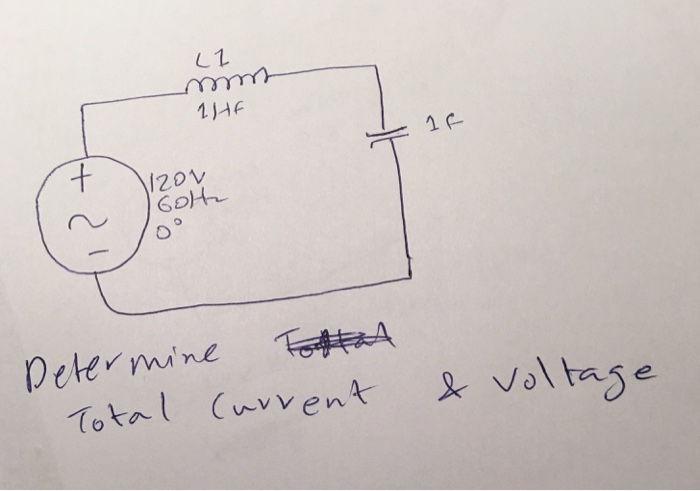 L1
1HF
1F
+
120V
60Hz
0°
~
−
Determine
Total Current & Voltage